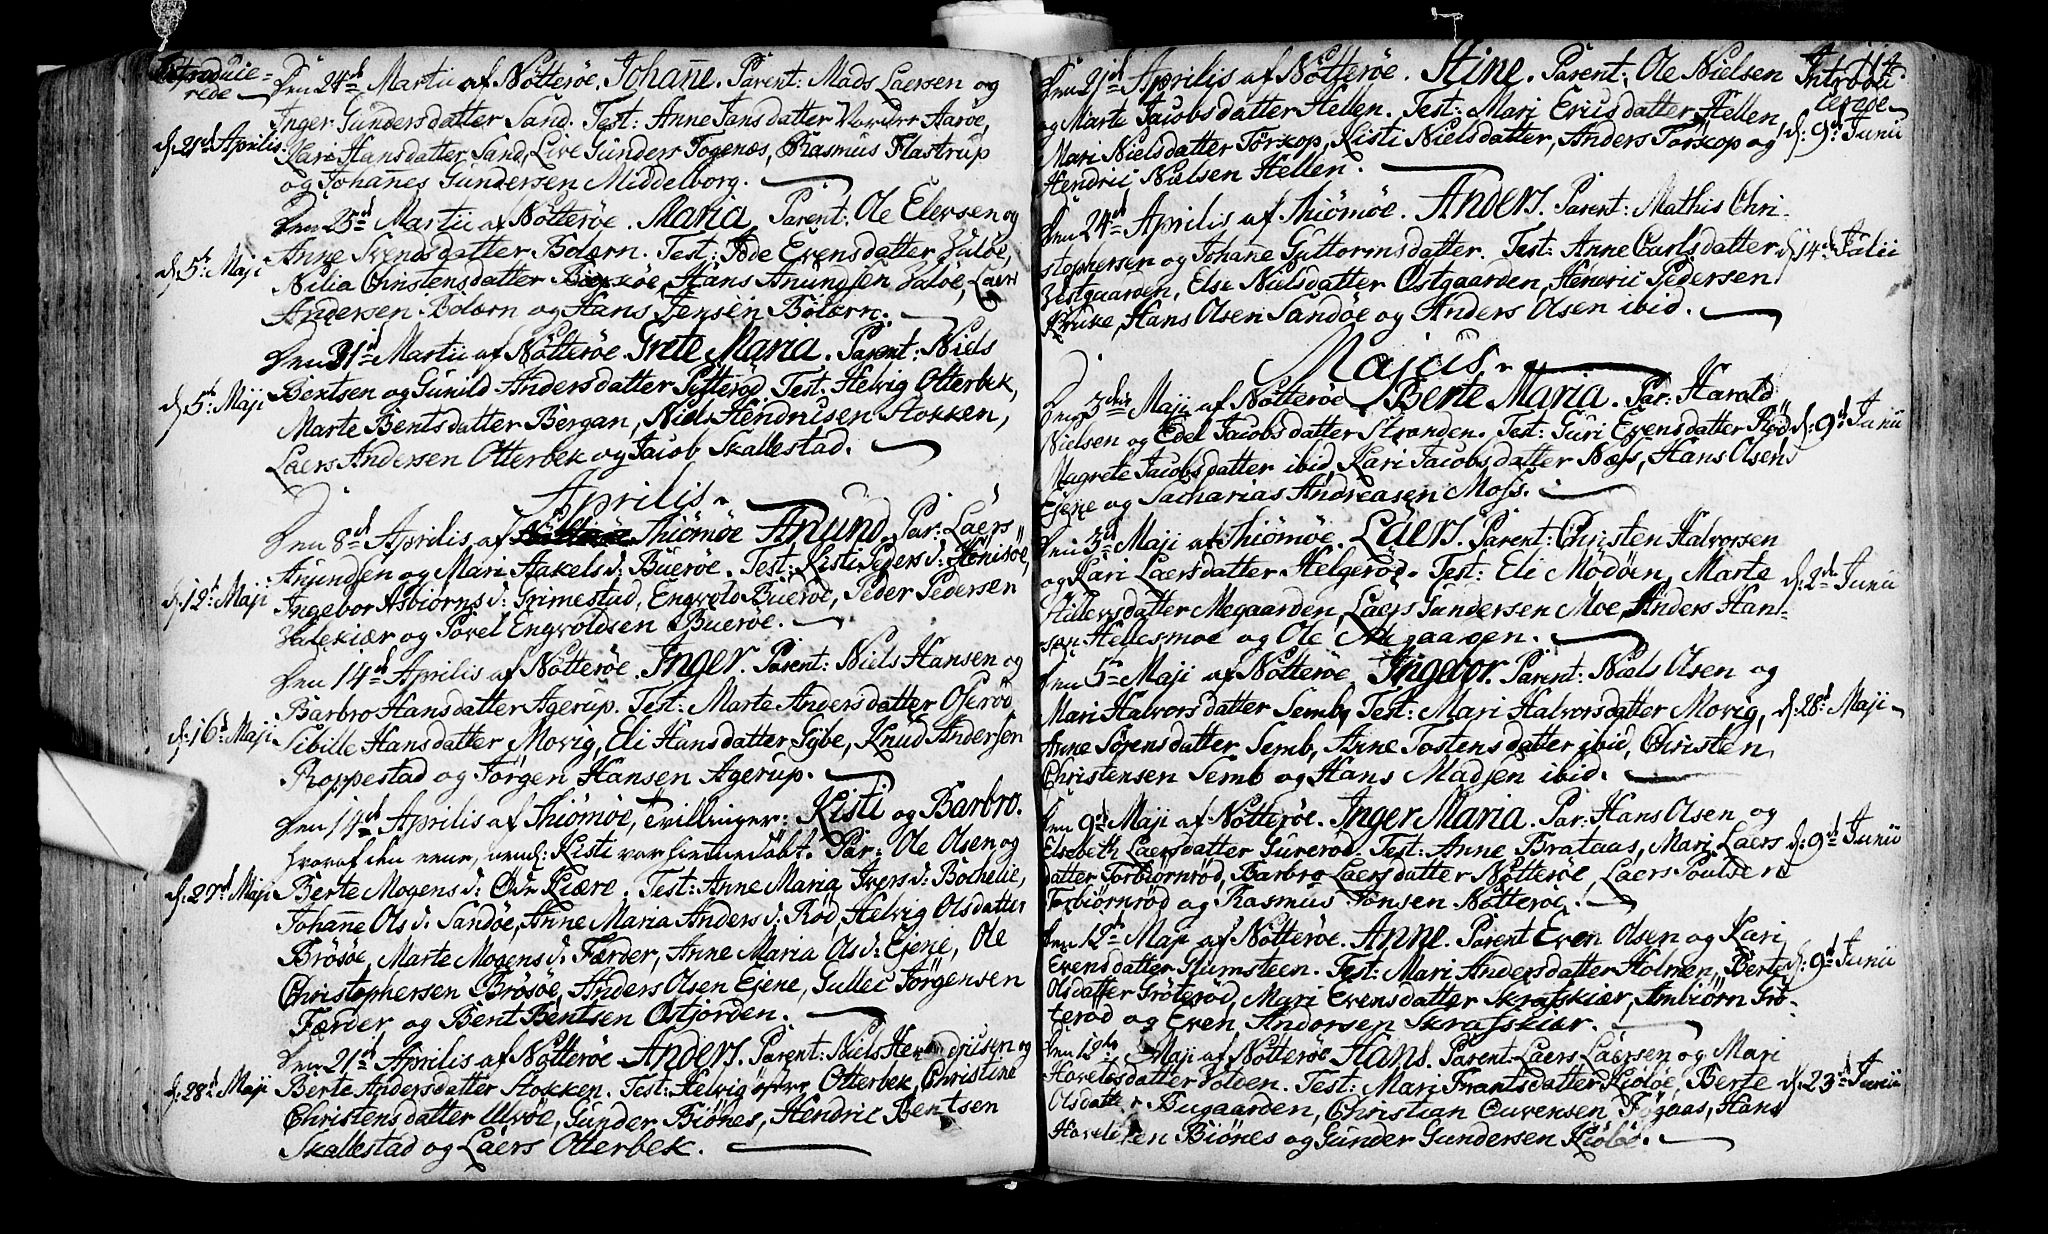 Introducie-
rede
Den 24d Martii af Nötteröe. Johanne. Parent: Mads Laersen og
Inger Gundersdatter Sand. Test: Anne Jansdatter Aaröe,
d: 21d Aprilis
Mari Hansdatter Sand, Live Gunders Togenæs, Rasmus Flastrup
og Johannes Gundersen Middelborg.
Den 25d Martii af Nötteröe. Maria. Parent: Ole Elersen og
Anne Svendsdatter Bolærn. Test: Evensdatter Valöe,
d: 5t Maji
Nilia Christensdatter Hans Anundsen Valöe, Laers
Andersen Bolærn og Hans Jensen Bolærn.
Den 31d Martii af Nötteröe Grete Maria. Parent: Niels
d: 5t: Maji
Bentsen og Gunild Andersdatter Petteröd. Test: Helvig Otterbek,
Marte Bentsdatter Bergan, Niels Hendricsen Stokken,
Laers Andersen Otterbek og Jacob Skallestad.
Aprilis
Den 8d Aprilis af Thiömöe Anund. Par: Laers
Anundsen og Mari Hakels d: Bueröe. Test: Kisti Pejers d:
d: 12t Maji
Ingebor Asbiörns d: Grimestad, Engvold Bueröe, Peder Pedersen
Valekiær og Povel Engvoldsen Bueröe.
Den 14d Aprilis af Nötteröe. Inger. Parent: Niels Hansen og
Barbro Hansdatter Agerup. Test: Marte Andersdatter Oseröd,
d: 16d Maji
Sibille Hansdatter Movig, Eli Hansdatter Gybe, Knud Andersen
Roppestad og Jörgen Hansen Agerup.
Den 14d Aprilis af Thiömöe, tvillinger: Kisti og Barbro.
hvoraf den eene, neml: Kisti var hiemedöbt. Par: Ole Olsen og
d: 23d Maji
Berte Mogens d: Ödekiære. Test: Anne Maria Ivers d: Bochelie,
Johanne Ols d: Sandöe, Anne Maria Anders d: Röd, Helvig Olsdatter
Brösöe, Marte Mogens d: Færder, Anne Maria Ols d: Ejene, Ole
Christophersen Brösöe, Anders Olsen Ejene, Gullic Jörgensen
Færder og Bent Bentsen Ostjorden.
Den 21d Aprilis af Nötteröe Anders. Parent: Niels Hendricsen og
d: 28d Maji
Berte Andersdatter Stokken. Test: Helvig Otterbek, Christine
Christensdatter Ulvöe, Gunder Biönes, Hendric Bentsen
Skallestad og Laers Otterbek.
114
Introdu
cerede
Den 21d Aprilis af Nötteröe. Stine. Parent: Ole Nielsen
og Marte Jacobsdatter Hellen. Test: Mari Ericsdatter Hellen,
Mari Nielsdatter Torskop, Kisti Nielsdatter, Anders Torskop og
d: 9d Junii
Hendric Nielsen Hellen.
Den 24d Aprilis af Thiömöe. Anders. Parent: Mathis Chri-
stophersen og Johane Guttormsdatter. Test: Anne Carlsdatter
d: 14d Julii
Vestgaarden, Else Nielsdatter Östgaarden, Hendric Pedersen
Kruke, Hans Olsen Sandöe og Anders Olsen ibid.
Majus
Den 3die Maji af Nötteröe Berte Maria. Par: Harald
Nielsen og Edel Jacobsdatter Stranden. Test: Guri Evensdatter Röd,
d: 9d Junii
Magrete Jacobsdatter ibid, Kari Jacobsdatter Næss, Hans Olsen
Ejene og Sacharias Andreasen Moss.
Den 3d Maji af Thiömöe. Laers. Parent: Christen Halvorsen
og Kari Laersdatter Helgeröe. Test: Eli Mödöen, Marte
d: 2d Junii
Hillersdatter Megaarden, Laers Gundersen Moe, Anders Han-
sen Hellesmoe og Ole Megaarden.
Den 5te Maji af Nötteröe Ingebor. Parent: Niels Olsen og
Mari Halvorsdatter Semb. Test: Mari Halvorsdatter Movig,
d: 28d Maji
Anne Sörensdatter Semb, Anne Tostensdatter ibid, Christen
Christensen Semb og Hans Madsen ibid.
Den 9d Maji af Nötteröe. Inger Maria. Par: Hans Olsen og
Elsebeth Laersdatter Gureröd. Test: Anne Brataas, Mari Laers
d: 9d Junii
datter Torbiörnröd, Barbro Laersdatter Nötteröe, Laers Poulsen
Torbiörnröd og Rasmus Jonsen Nötteröe.
Den 12te Maji af Nötteröe. Anne. Parent Even Olsen og Kari
Evensdatter Glumsteen. Test: Mari Andersdatter Holmen, Berte
d: 9d Junii
Olsdatter Gröteröd, Mari Evensdatter Skrafskiær, Ambiörn Grö-
teröd og Even Andorsen Skrafskiær.
Den 12te Maji af Nötteröe Hans. Parent: Laers Laersen og Mari
Havelesdatter Volden. Test: Mari Frantsdatter Kiölöe, Berte
d: 23d Junii
Olsdatter Bugaarden, Christian Fögaas, Hans
Biönes og Gunder Gundersen Kiölöe.